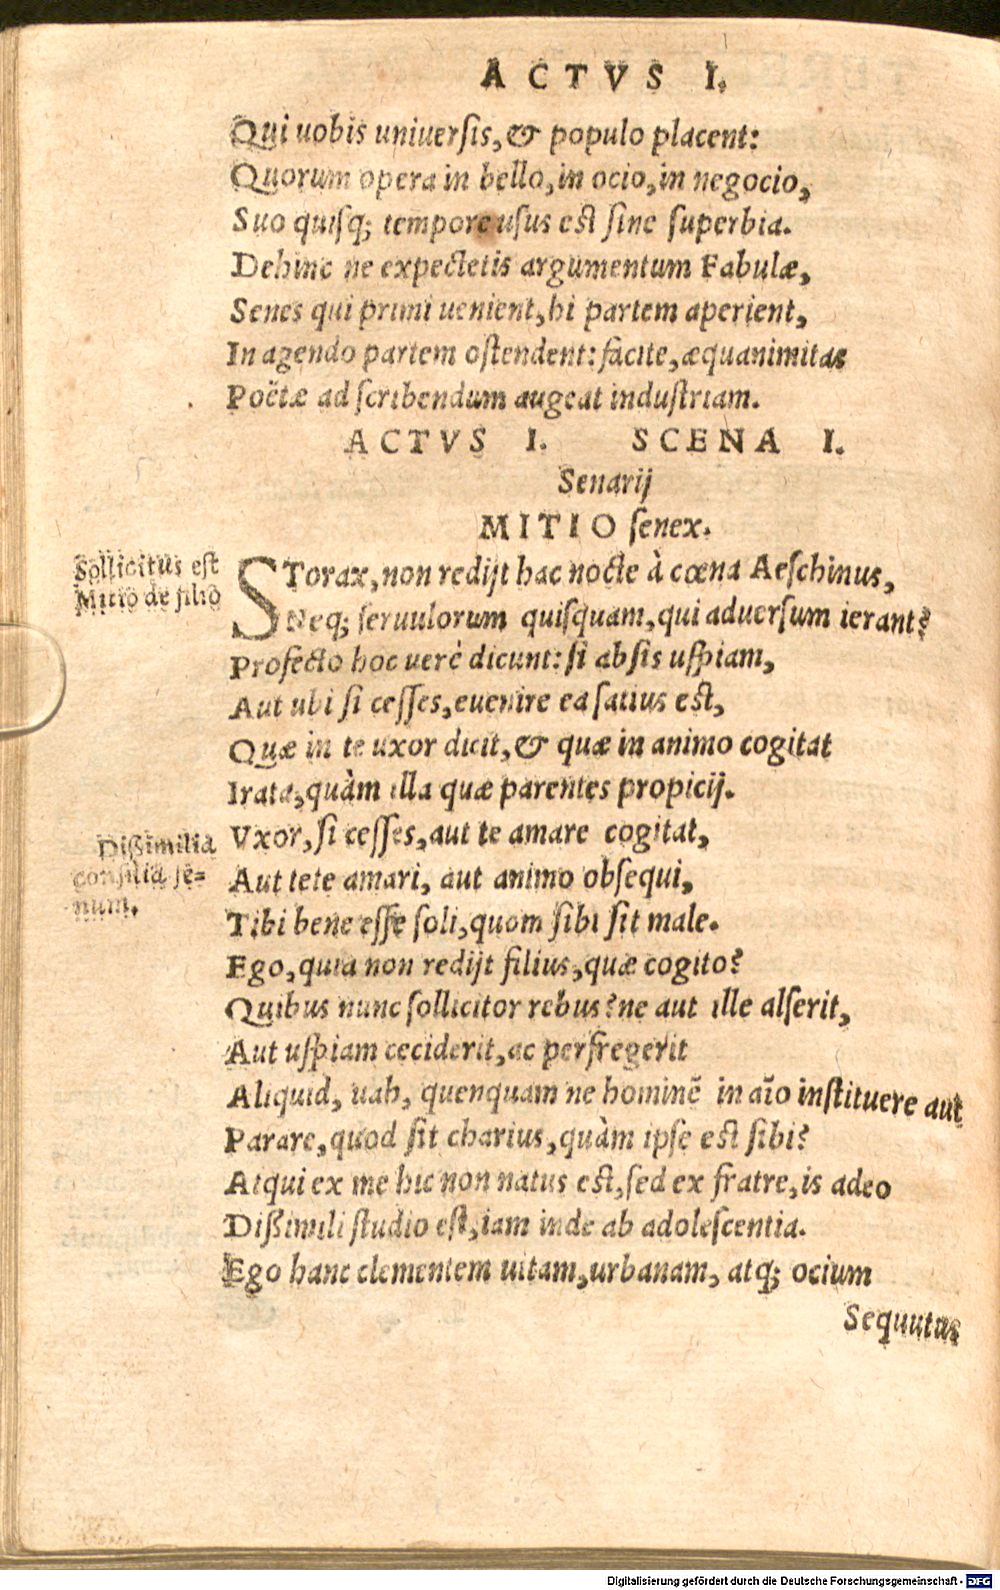 ACTVS I.
Qui uobis uniuersis, & populo placent:
Quorum opera in bello, in ocio, in negocio,
Suo quisq; tempore usus est sine superbia.
Dehinc ne expectetis argumentum Fabulæ,
Senes qui primi uenient, hi partem aperient,
In agendo partem ostendent: facite, æquanimitas
Poëtæ ad scribendum augeat industriam.
ACTVS I. SCENA I.
Senarij
MITIO senex.
Sollicitus est
Mitio de filio
STorax, non redijt hac nocte à cœna Aeschinus,
Neq; seruulorum quisquam, qui aduersum ierant?
Profecto hoc uerè dicunt: si absis uspiam,
Aut ubi si cesses, euenire ea satius est,
Quæ in te uxor dicit, & quæ in animo cogitat
Irata, quàm illa quæ parentes propicij.
Vxor, si cesses, aut te amare cogitat,
Dißimilia
consilia se=
num.
Aut tete amari, aut animo obsequi,
Tibi bene esse soli, quom sibi sit male.
Ego, quia non redijt filius, quæ cogito?
Quibus nunc sollicitor rebus? ne aut ille alserit,
Aut uspiam ceciderit, ac perfregerit
Aliquid, uah, quenquam ne hominē in aīo instituere aut
Parare, quod sit charius, quàm ipse est sibi?
Atqui ex me hic non natus est, sed ex fratre, is adeo
Dißimili studio est, iam inde ab adolescentia.
Ego hanc clementem uitam, urbanam, atq; ocium
Sequutus
Digitalisierung gefördert durch die Deutsche Forschungsgemeinschaft - DFG